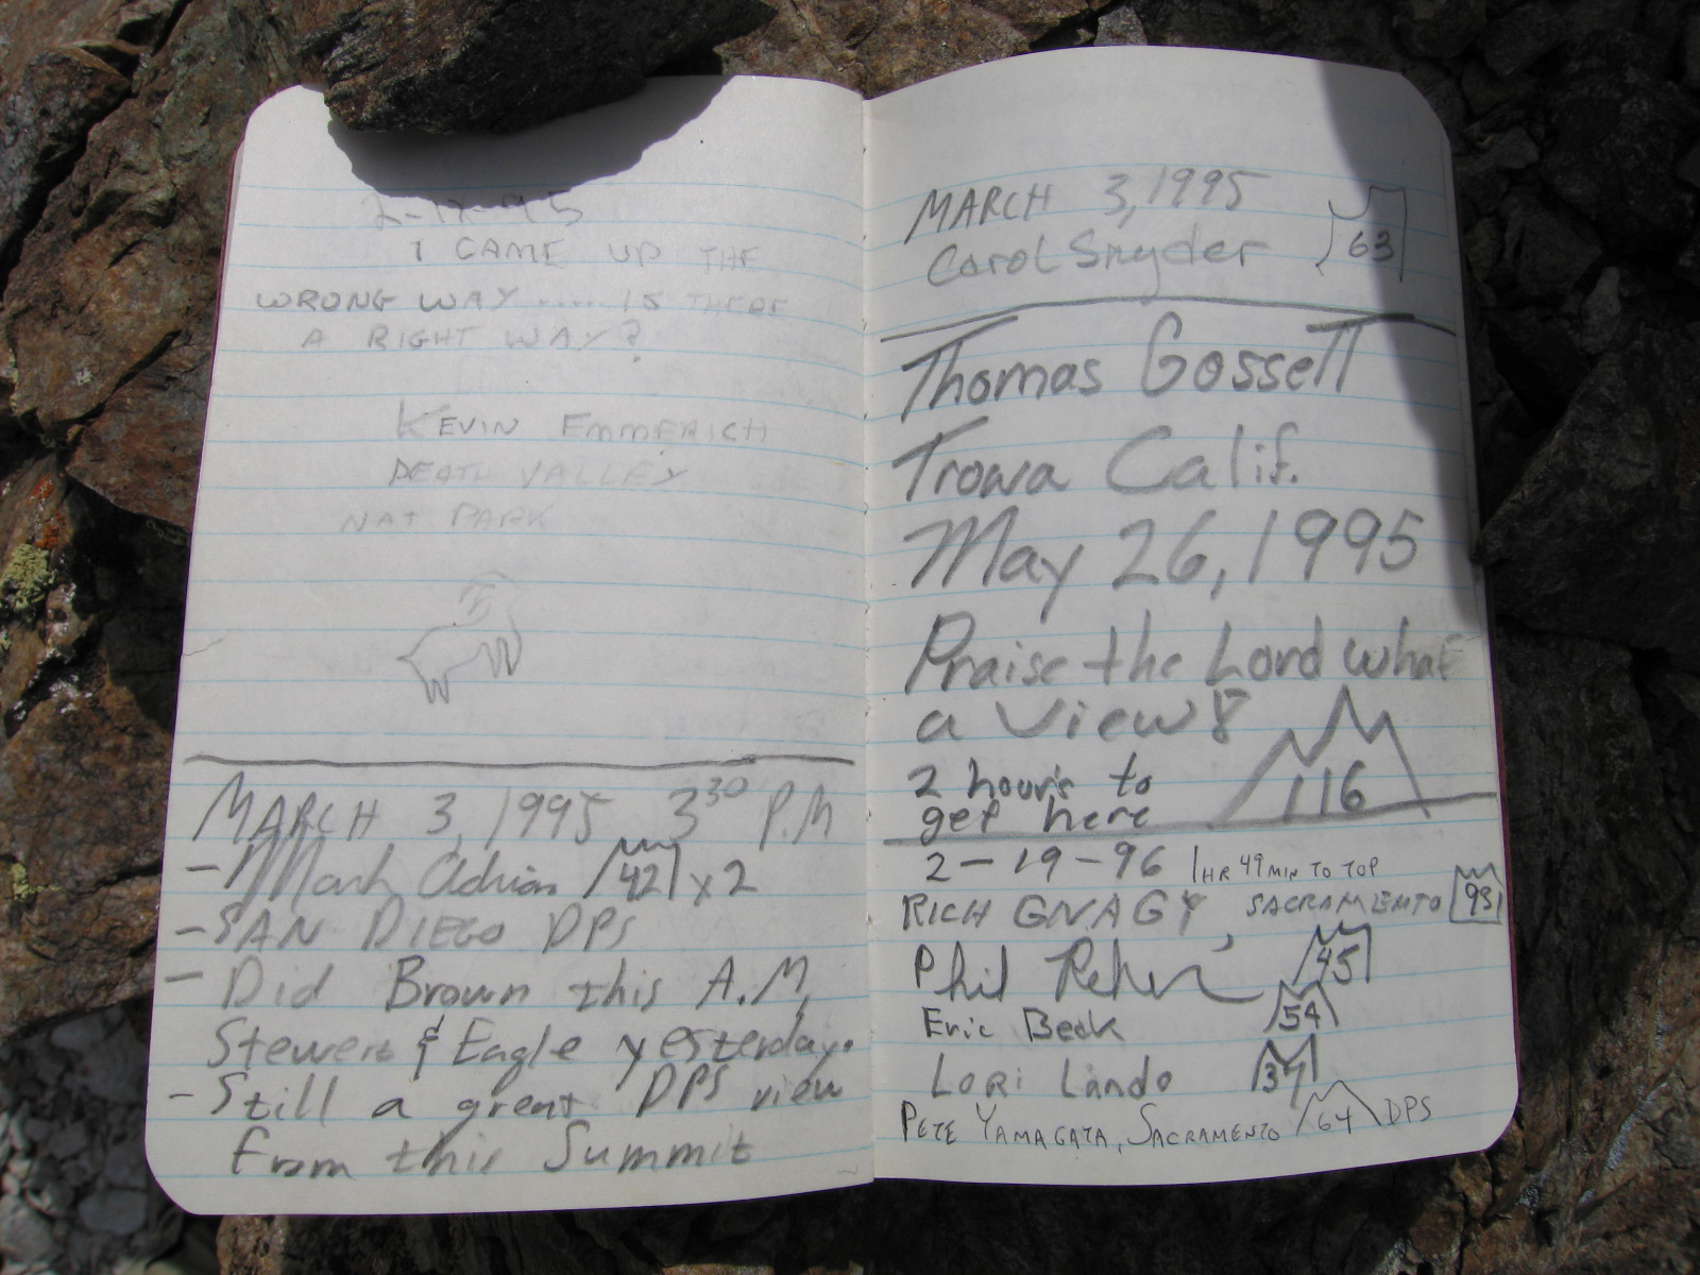 2-17-95
I CAME UP THE
WRONG WAY ..... IS THERE
A RIGHT WAY?
KEVIN EMMERICH
DEATH VALLEY
NAT PARK
MARCH 3, 1995 3 30 P.M
- Mark Adrian 42 x 2
- SAN DIEGO DPS
- Did Brown this A.M,
Stewart & Eagle yesterday.
- Still a great DPS view
from this Summit
MARCH 3, 1995
Carol Snyder 63
Thomas Gossett
Trona Calif.
May 26, 1995
Praise the Lord what
a view!
2 hours to
get here 116
2-19-96 1 HR 49 MIN TO TOP
RICH GNAGY, SACRAMENTO 93
Phil 45
Eric Beck 54
LORI Lando 37
PETE YAMAGATA, SACRAMENTO 64 DPS